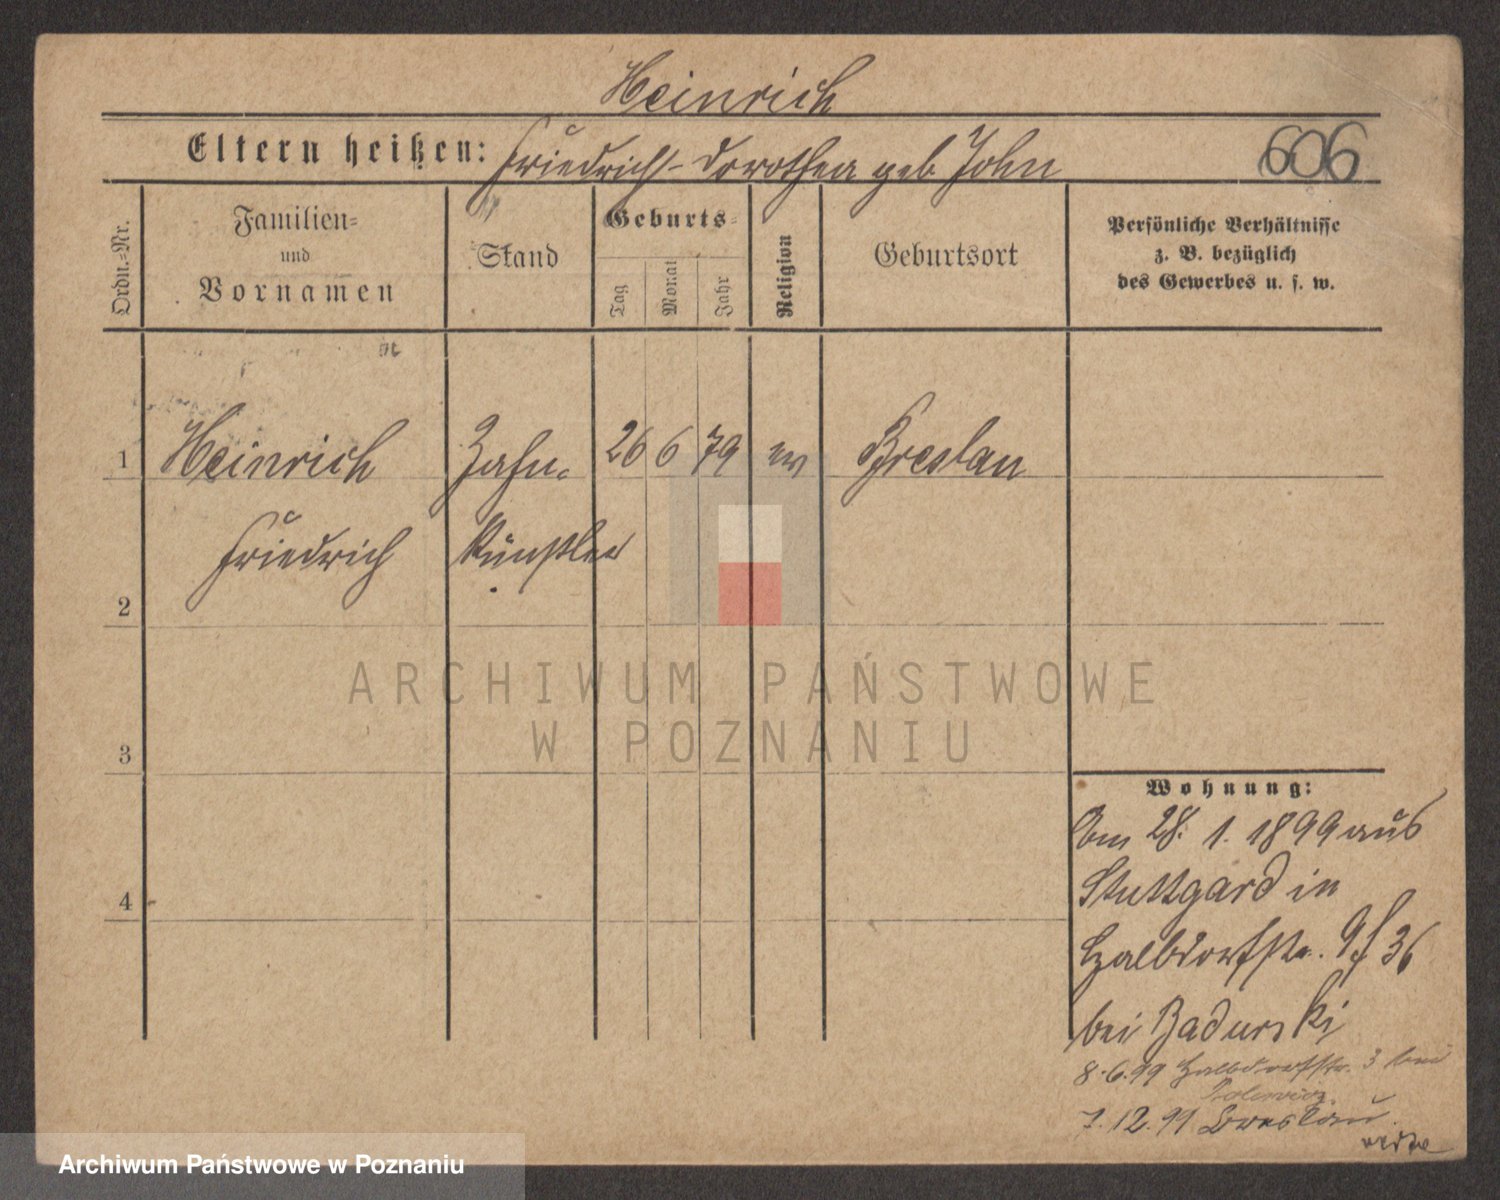 Heinrich
Eltern heißen: Friedrich - Dorothea geb John
606
Ordn.=Nr.
Familien=
und
Vornamen
Stand
Geburts=
Tag
Monat
Jahr
Religion
Geburtsort
Persönliche Verhältnisse
z. B. bezüglich
des Gewerbes u. s. w.
1 Heinrich Zahn= 26 6 79 ev Breslau
Friedrich künstler
2
3
4
ARCHIWUM PAŃSTWOWE
W POZNANIU
Wohnung:
Am 28. 1. 1899 aus
Stuttgard in
Halbdorfstr. 9/36
bei Badurski
8.6.99 Halbdorfstr. 3 bei
7.12.99 Breslau
Archiwum Państwowe w Poznaniu